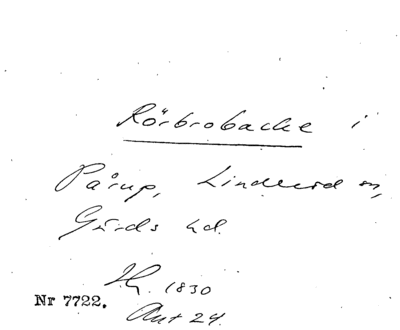 Rörbrobacke i
Pårup, Linderöd sn,
Gärds hd.
Hg. 1830
Nr 7722.
Ant 24.